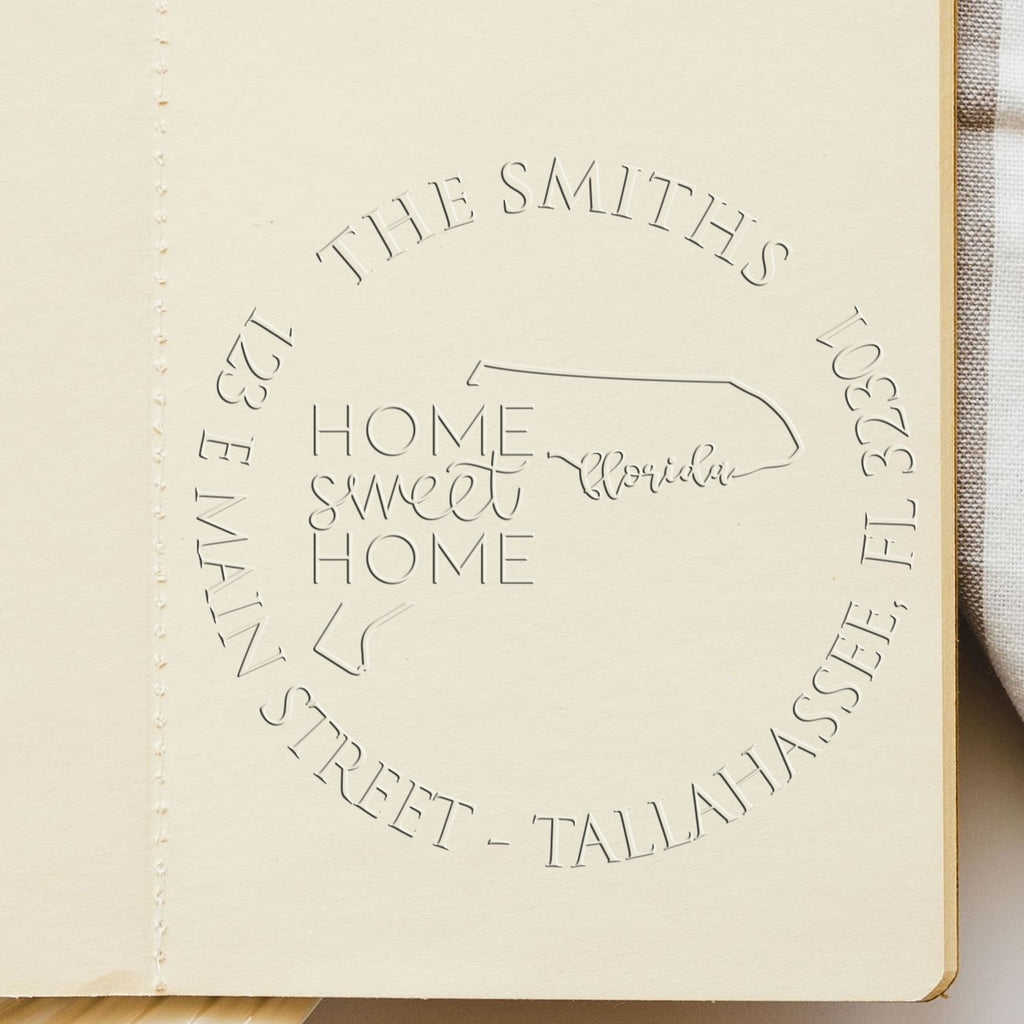 THE SMITHS
HOME
sweet
HOME
florida
123 E MAIN STREET - TALLAHASSEE, FL 32301